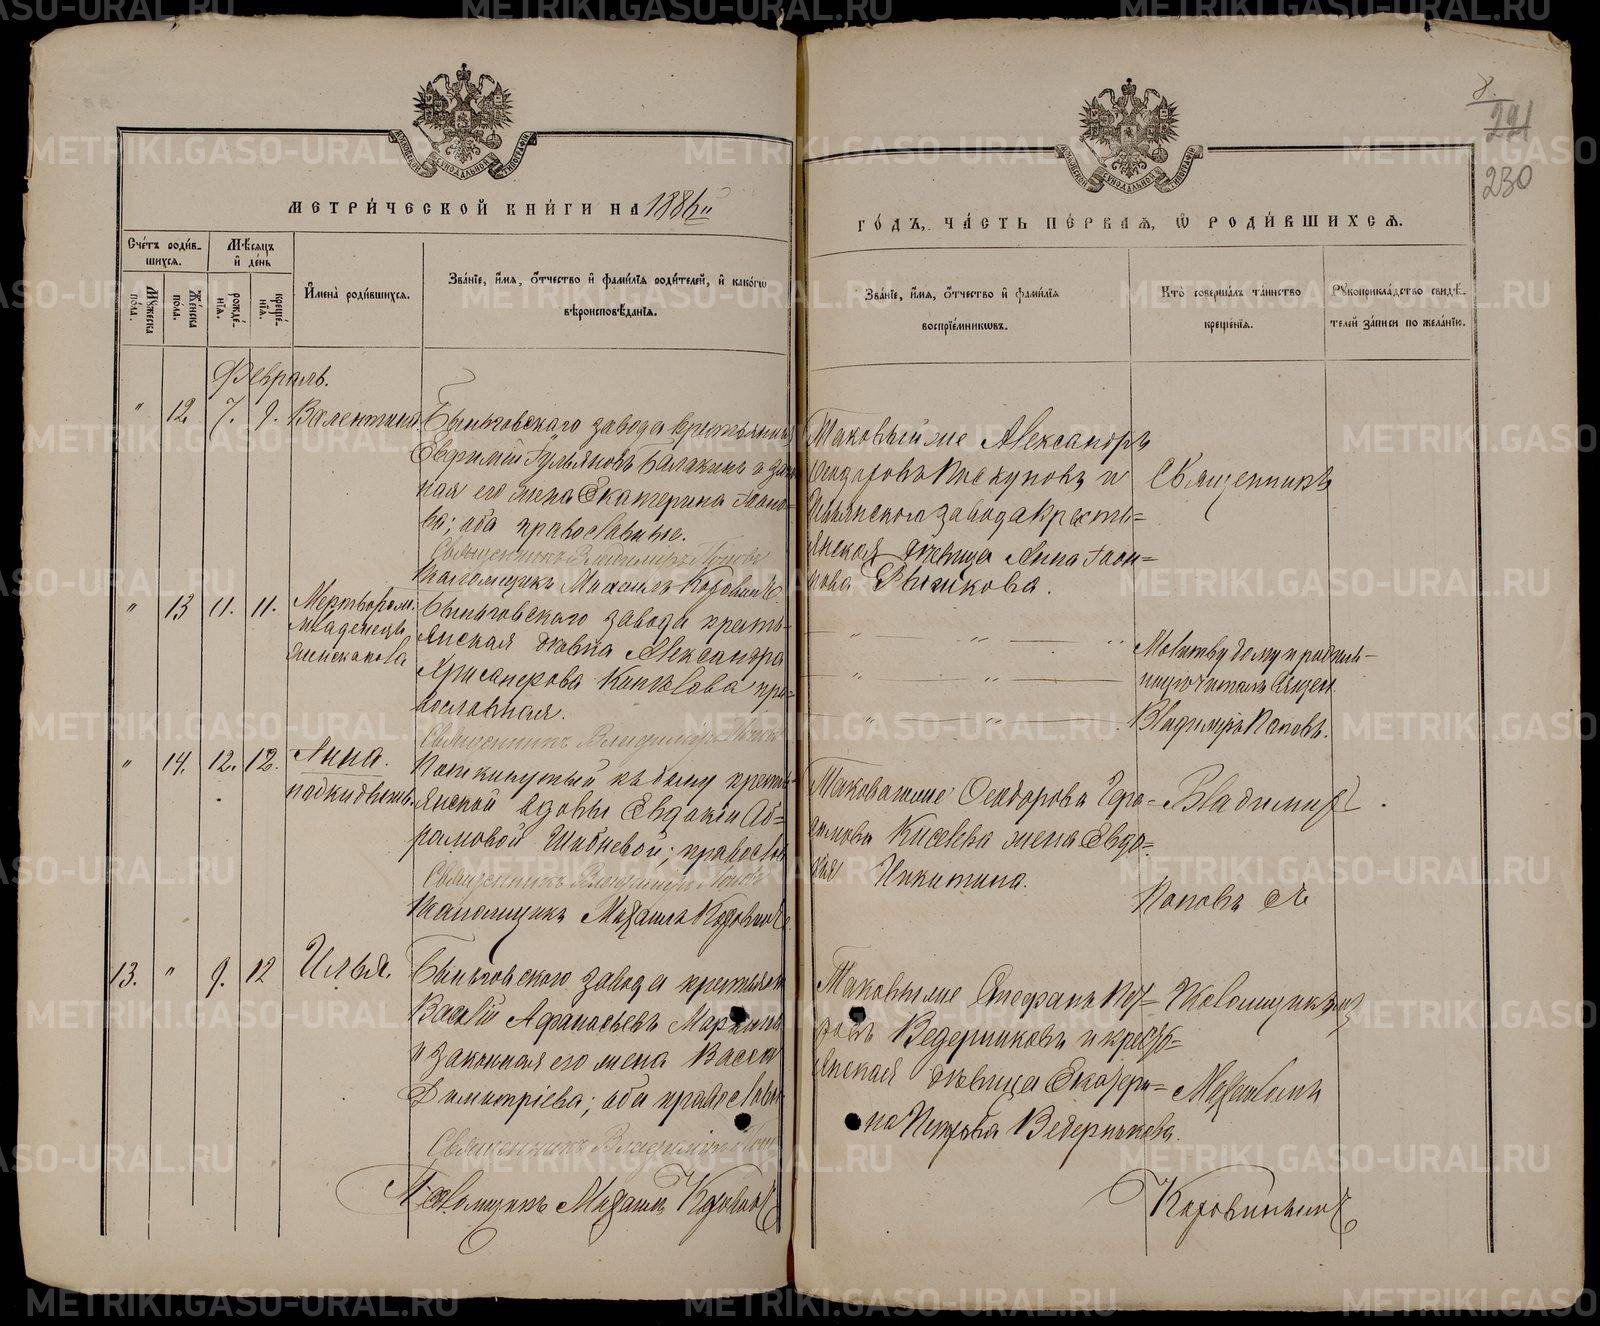 МЕТРИ́ЧЕСКОЙ КНИ́ГИ НА 1886й
ГО́ДЪ, ЧА́СТЬ ПЕ́РВАЯ, Ѡ РОДИ́ВШИХСЯ.
8.
221
230
Сче́тъ роди́в-
шихся.
Му́жеска по́ла.
Же́нска пола.
Мѣ́сяцъ
и̂ де́нь
рожде́нїя.
креще́нїя.
И҆мена̀ роди́вшихся.
Зва́нїе, и҆́мя, ѻ҆́тчество и҆ фами́лїя роди́телей, и҆ како́гѡ
вѣроисповѣ́данїя.
Зва́нїе, и҆́мя, ѻ҆́тчество и҆ фами́лїя
воспрїе́мникѡвъ.
Кто̀ соверша́лъ та́инство
креще́нїя.
Рꙋкоприкла́дство свидѣ́-
телей за́писи по жела́нїю.
Февраль.
" 12. 7. 9. Валентина
Быньговскаго завода крестьянинъ
Евфимій Балакинъ и закон
ная его жена Екатерина
ва; оба православные.
Священникъ Владиміръ Поповъ
Псаломщикъ Михаилъ Коровинъ.
Таковый же Александръ
Ѳеодоровъ Пискуновъ и
завода кресть=
янская дѣвица Анна
нова
Священникъ
" 13 11. 11. Мертворожд.
младенецъ
женскаго пола
Быньговскаго завода кресть=
янская дѣвка Александра
Хрисанфова Киселева пра=
вославная.
Священникъ Владиміръ Поповъ
Молитву дому и родиль=
ницѣ читалъ Священ.
Владиміръ Поповъ.
" 14. 12. 12. Анна.
подкидышъ
Подкинутый къ дому кресть=
янской вдовы Евдокіи Аб=
рамовой православн
Священникъ Владиміръ Поповъ
Псаломщикъ Михаилъ Коровинъ.
Таковаго же Ѳеодора Гера=
симова Киселева жена Евдо=
кія Никитина.
Владиміръ
Поповъ съ
13. " 9. 12 Илья.
Быньговскаго завода крестьянин
Василій Афанасьевъ
и законная его жена Васса
Димитріева; оба православн
Священникъ Владиміръ Поповъ
Псаломщикъ Михаилъ Коровинъ
Таковый же Стефанъ Пет=
ровъ Ведерниковъ и кресть=
янская дѣвица Екатери=
на Петрова Ведерникова.
Псаломщикомъ
Михаиломъ
Коровинымъ